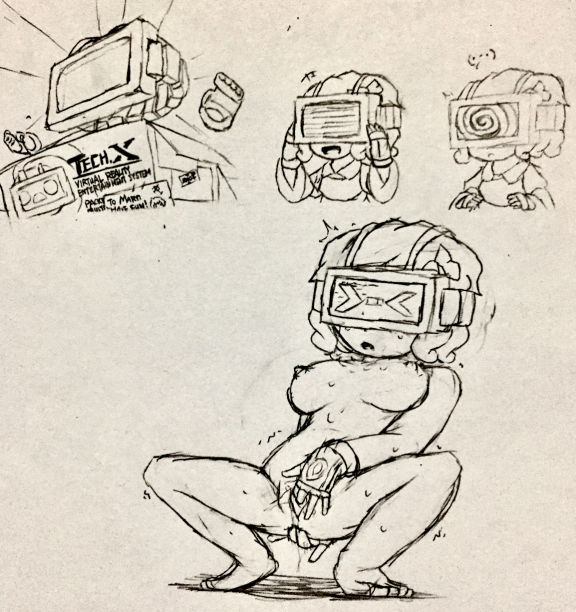 TECH.X
VIRTUAL REALITY
ENTERTAINMENT SYSTEM
PACKY TO MARN
HAVE FUN!